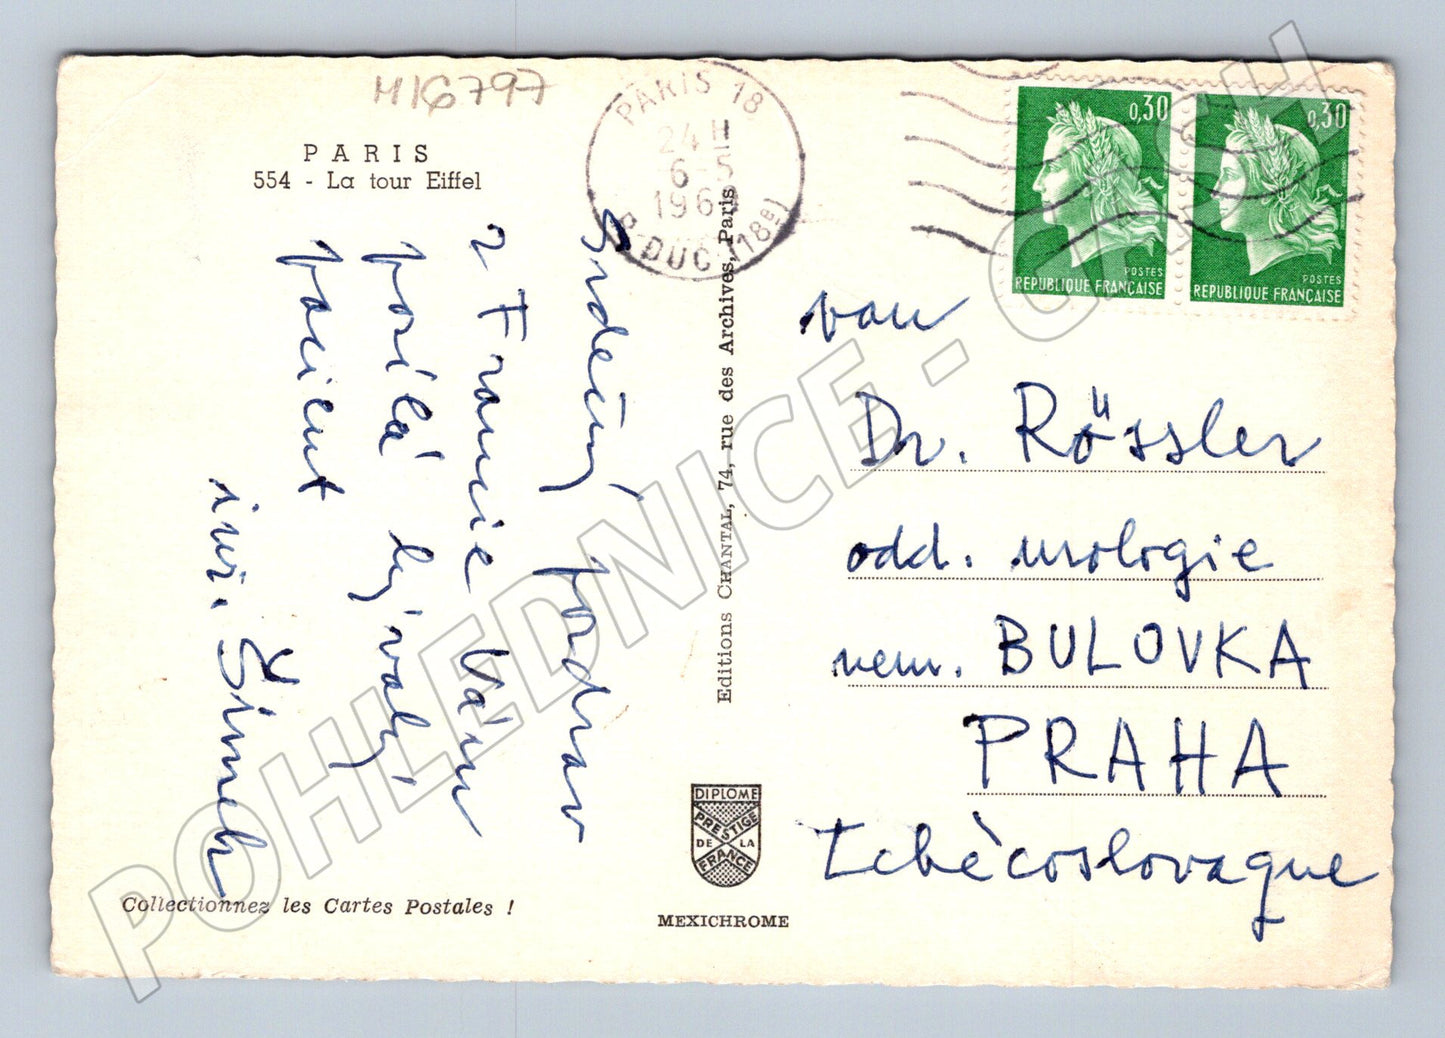 M16797
PARIS
554 - La tour Eiffel
PARIS 18
24 H
6-5
196
R. DUC (18e)
0,30
POSTES
REPUBLIQUE FRANÇAISE
0,30
POSTES
REPUBLIQUE FRANÇAISE
Srdečný pozdrav
z Francie Vám
posílá bývalý
pacient
inž. Šimek
Editions CHANTAL, 74, rue des Archives, Paris
pan
Dr. Rössler
odd. urologie
nem. BULOVKA
PRAHA
Tchècoslovaque
DIPLOME
PRESTIGE
DE LA
FRANCE
MEXICHROME
Collectionnez les Cartes Postales !
POHLEDNICE - CZ.CH